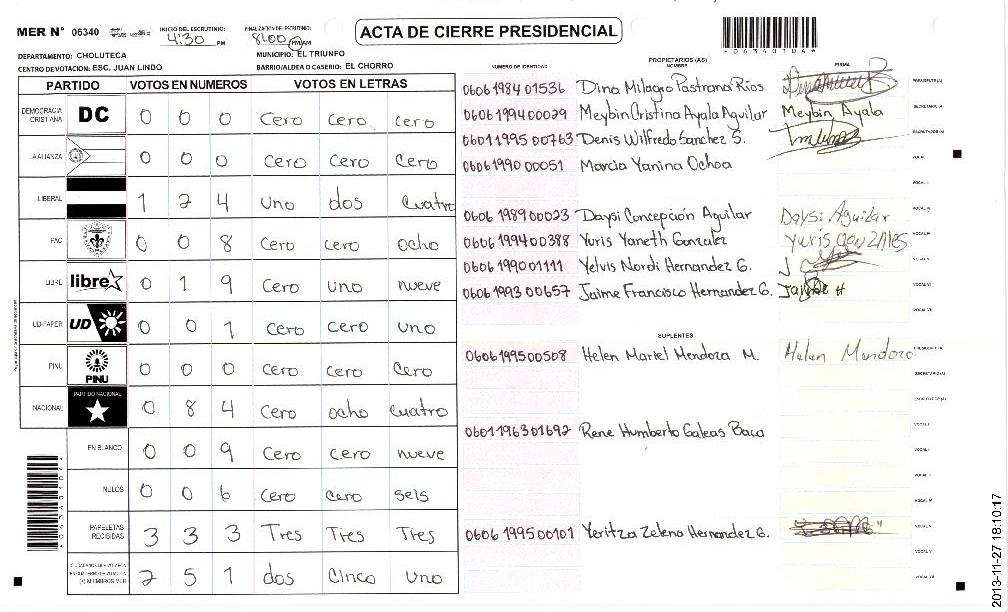 MER N° 06340 INICIO DEL ESCRUTINIO: 4:30 PM FINALIZACION DEL ESCRUTINIO: 8:00 PM/AM
ACTA DE CIERRE PRESIDENCIAL
*06340104*
DEPARTAMENTO: CHOLUTECA MUNICIPIO: EL TRIUNFO
CENTRO DE VOTACION: ESC. JUAN LINDO BARRIO/ALDEA O CASERIO: EL CHORRO
PARTIDO VOTOS EN NUMEROS VOTOS EN LETRAS
DEMOCRACIA CRISTIANA DC 0 0 0 Cero Cero Cero
LA ALIANZA 0 0 0 Cero Cero Cero
LIBERAL 1 2 4 Uno dos Cuatro
PAC 0 0 8 Cero Cero ocho
LIBRE libre 0 1 9 Cero uno nueve
UD-FAPER UD 0 0 1 Cero Cero uno
PINU PINU 0 0 0 Cero Cero Cero
NACIONAL PARTIDO NACIONAL 0 8 4 Cero ocho Cuatro
EN BLANCO 0 0 9 Cero Cero nueve
NULOS 0 0 6 Cero Cero seis
PAPELETAS RECIBIDAS 3 3 3 Tres Tres Tres
(+) MIEMBROS MER 2 5 1 dos Cinco uno
PROPIETARIOS (AS)
NUMERO DE IDENTIDAD NOMBRE FIRMA
0606 1984 01536 Dina Milagro Pastrana Ríos PRESIDENTE (A)
0606 1994 00029 Meybin Cristina Ayala Aguilar Meybin Ayala SECRETARIO (A)
0601 1995 00763 Denis Wilfredo Sanchez S. ESCRUTADOR (A)
0606 1990 00051 Marcia Yanina Ochoa VOCAL I
VOCAL II
0606 1989 00023 Daysi Concepción Aguilar Daysi Aguilar VOCAL III
0606 1994 00388 Yuris Yaneth Gonzalez Yuris GONZALES VOCAL IV
0606 1990 01111 Yelvis Nordi Hernandez G. VOCAL V
0606 1993 00657 Jaime Francisco Hernandez G. Jaime H VOCAL VI
VOCAL VII
SUPLENTES
0606 1995 00508 Helen Mariel Mendoza M. Helen Mendoza PRESIDENTE (A)
SECRETARIO (A)
ESCRUTADOR (A)
0601 1963 01692 Rene Humberto Galeas Baca VOCAL I
VOCAL II
VOCAL III
VOCAL IV
0606 1995 00101 Yeritza Zelena Hernandez G. VOCAL V
VOCAL VI
VOCAL VII
2013-11-27 18:10:17